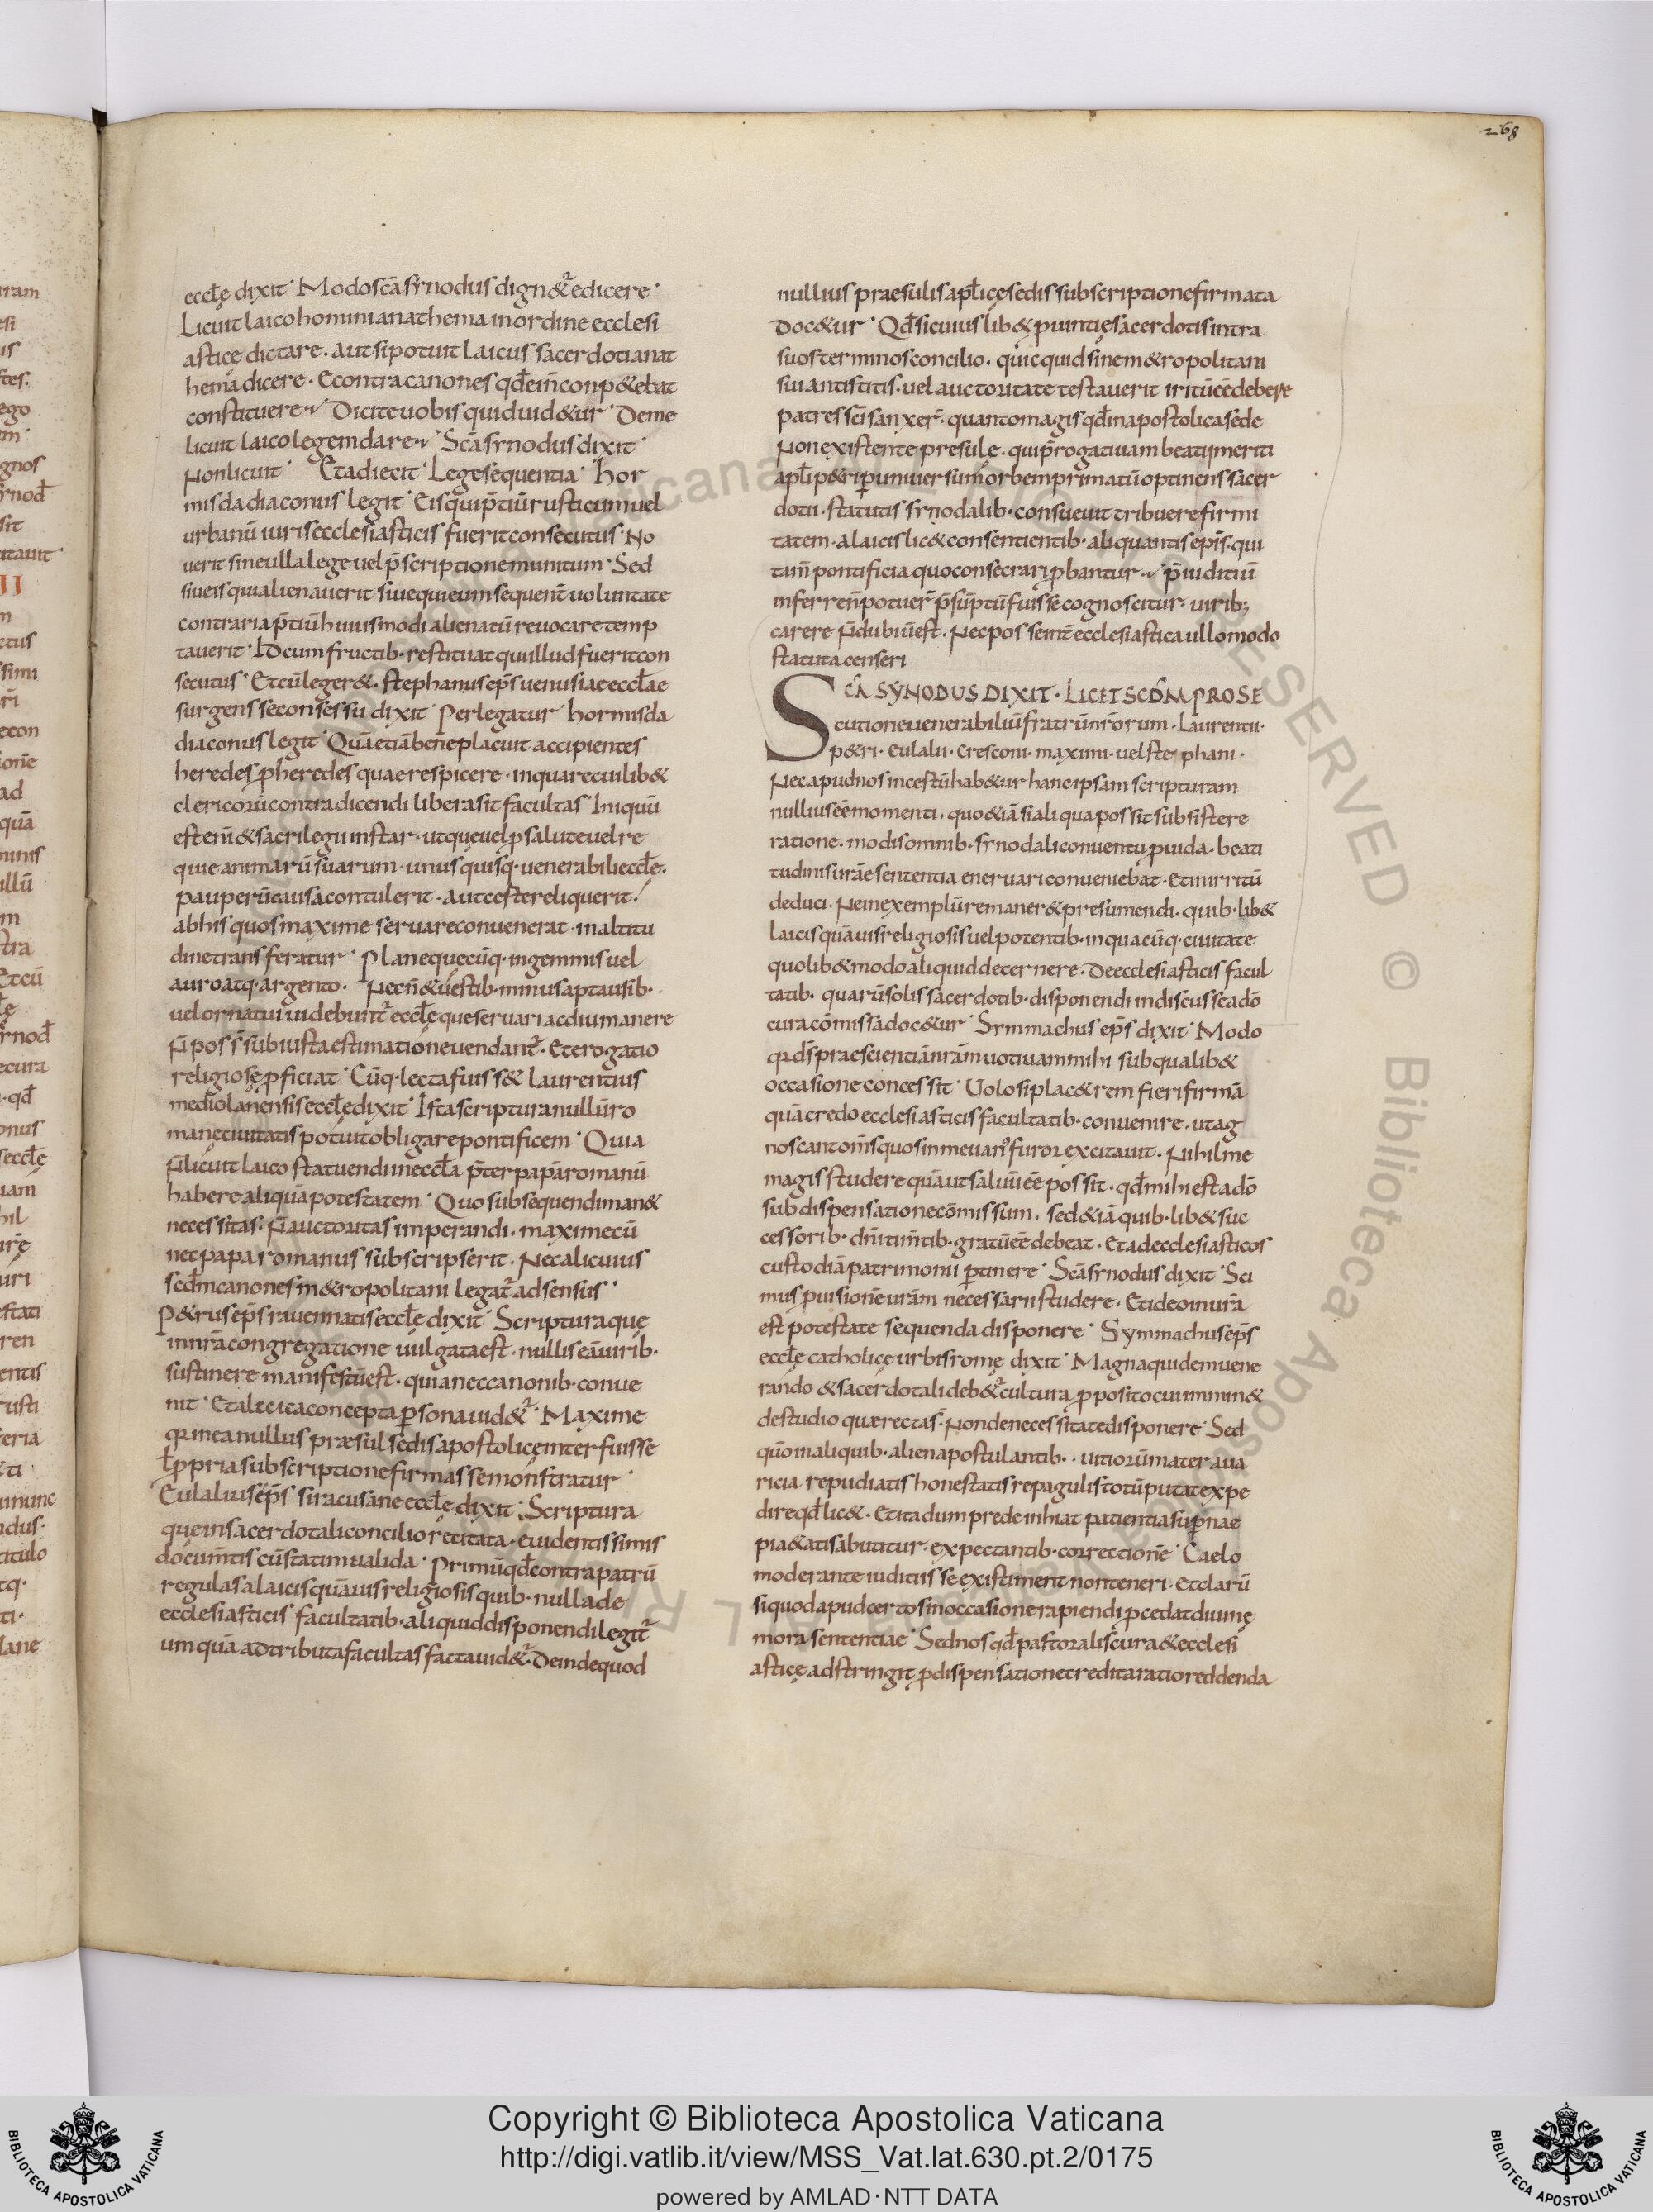 268
eccłę dixit· Modo scā synodus dignet̃ edicere·
Licuit laico homini anathema in ordine ecclesi
asticę dictare. aut si potuit laicus sacerdoti anat
hema dicere. Et contra canones qđ ei n̄ conpetebat
constituere· Dicite vobis quid uidetur Deme
licuit laico legem dare· Scā synodus dixit·
Non licuit· Et adiecit· Lege sequentia· Hor
misda diaconus legit· Eis qui p̄tiū rusticum uel
urbanū iuris ecclesiasticis fuerit consecutus· No
uerit sine ulla lege uel p̄scriptionem unitum· Sed
siue is qui alienauerit siue qui eum sequenť uoluntate
contraria p̄tiū huiusmodi alienatū reuocare temp
tauerit· Id cum fructib· restituat qui illud fuerit con
secutus· Et cū legeret. stephanus ep̄s uenusiae eccłae
surgens se consessu dixit· Perlegatur· hormisda
diaconus legit· Quā etiā bene placuit accipientes
heredes p̱ heredes quae respicere· in qua re cuilibet
clericorū contradicendi libera sit facultas· Iniquū
est enī & sacrilegii instar· ut quę uel p̱ salute uel re
quie animarū suarum· unusquisq· uenerabili eccłę.
pauperū causa contulerit· aut certe reliquerit·
ab his quos maxime seruare conuenerat· in altitu
dine transferatur· Plane quęcūq· in gemmis uel
auro atq· argento. Necn̄ & uestib· minus apta usib·
uel ornatui uidebunt̃ eccłę que seruari ac diu manere
n̄ poss̄ sub iusta estimatione uendant̃· Et erogatio
religiosę p̱ficiat· Cūq· lecta fuisset laurentius
mediolanensis eccłę dixit· Ista scriptura nullū ro
manę ciuitatis potuit obligare pontificem· Quia
n̄ licuit laico statuendi in eccła p̄ter papā romanū
habere aliquā potestatem· Quo subsequendi manet
necessitas· n̄ auctoritas imperandi· maxime cū
nec papa romanus subscripserit· Nec alicuius
secđm canones metropolitani legat̃ adsensus·
Petrus ep̄s rauennatis eccłę dixit· Scriptura quę
in nr̄a congregatione uulgata est· nullis eā uirib·
sustinere manifestū est· quia nec canonib· conue
nit· Et a laica concepta p̱sona uidet̃· Maxime
q̄ in ea nullus praesul sedis apostolicę interfuisse
ł p̱pria subscriptione firmasse monstratur·
Eulalius ep̄s siracusane eccłę dixit· Scriptura
quę in sacerdotali concilio recitata· euidentissimis
documtis cūstat inualida· Primū qđ contra patrū
regulas a laicis quāuis religiosis quib· nulla de
ecclesiasticis facultatib· aliquid disponendi legit̃
umquā adtributa facultas facta uidet̃· Deinde quod
nullius praesulis apłicę sedis subscriptione firmata
docetur· Qđ si cuiuslibet p̱uintię sacerdotis intra
suos terminos concilio. quicquid sine metropolitani
sui antistitis. uel auctoritate testauerit irritū ēē debere
patres scī sanxer̄· quanto magis qđ in apostolica sede
Non existente presule. qui p̄rogatiuam beati meriti
apłi petri p̱ uniuersum orbem primatū optinens sacer
dotii. statutis synodalib· consueuit tribuere firmi
tatem· a laicis licet consentientib· aliquantis ep̄is· qui
tam̄ pontificia quo consecrari p̱bantur· p̄iuditiū
inferre n̄ potuer̄ p̄sūptū fuisse cognoscitur· uirib;
carere n̄ dubiū est. Nec posse int̄ ecclesiastica ullo modo
statuta censeri
SCĀ SYNODUS DIXIT· LICET SCDM PROSE
cutione uenerabiliū fratrū nr̄orum· Laurentii·
petri· Eulalii· Cresconi· maximi· uel stephani·
Nec apud nos incestū habetur hanc ipsam scripturam
nullius ēē momenti· quo etiā si aliqua possit subsistere
ratione. modis omnib· synodali conuentu p̱uida· beati
tudinis urāe sententia eneruari conueniebat· Et in irritū
deduci. Ne in exemplū remaneret presumendi. quib·libet
laicis quāuis religiosis uel potentib· in quacūq· ciuitate
quolibet modo aliquid decernere. de ecclesiasticis facul
tatib· quarū solis sacerdotib· disponendi indiscusse a dō
cura cōmissa docetur· Symmachus ep̄s dixit· Modo
q̄ d̄s praescientiā nr̄am uotiuam mihi sub qualibet
occasione concessit· Uolo si placet rem fieri firmā
quā credo ecclesiasticis facultatib· conuenire. ut ag
noscant om̄s quos in me uan᾽ furor excitauit. Nihil me
magis studere quā ut saluū ēē possit. qđ mihi est a dō
sub dispensatione cōmissum. sed etiā quib·libet suc
cessorib· dn̄i timtib· gratū ēē debeat· Et ad ecclesiasticos
custodiā patrimonii p̱tinere· Scā synodus dixit· Sci
mus p̱uisionē uram necessarii studere. Et ideo in urā
est potestate sequenda disponere· Symmachus ep̄s
eccłę catholicę urbis romę dixit· Magna quidem uene
rando & sacerdotali debet̃ cultura p̱posito cui imminet
de studio quae rectas· Non de necessitate disponere· Sed
quō in aliquib· aliena postulantib·· uitiorū mater aua
ricia repudiatis honestatis repagulis totū putat expe
dire qđ licet. Et ita dum predę inhiat patientia sup̱nae
pietatis abutitur· expectantib· correctionē· Caelo
moderante iuditiis se existiment non teneri· Et clarū
si quod apud certos in occasione rapiendi p̱cedat diuinę
mora sententiae· Sed nos qđ pastoralis cura & ecclesi
asticę adstringit p̱ dispensatione creditā ratio reddenda
Copyright © Biblioteca Apostolica Vaticana
http://digi.vatlib.it/view/MSS_Vat.lat.630.pt.2/0175
powered by AMLAD·NTT DATA
BIBLIOTECA APOSTOLICA VATICANA
BIBLIOTECA APOSTOLICA VATICANA